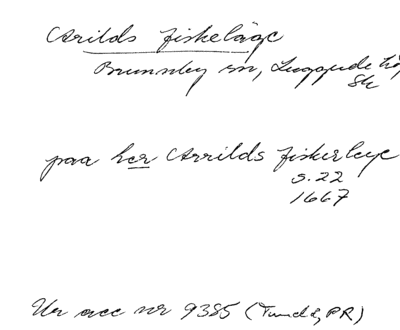 Arilds fiskeläge
Brunnby sn, Luggude hd,
Sk
paa her Arrilds fiskerleye
s. 22
1667
Ur acc nr 9385 (Tuneld, PR)